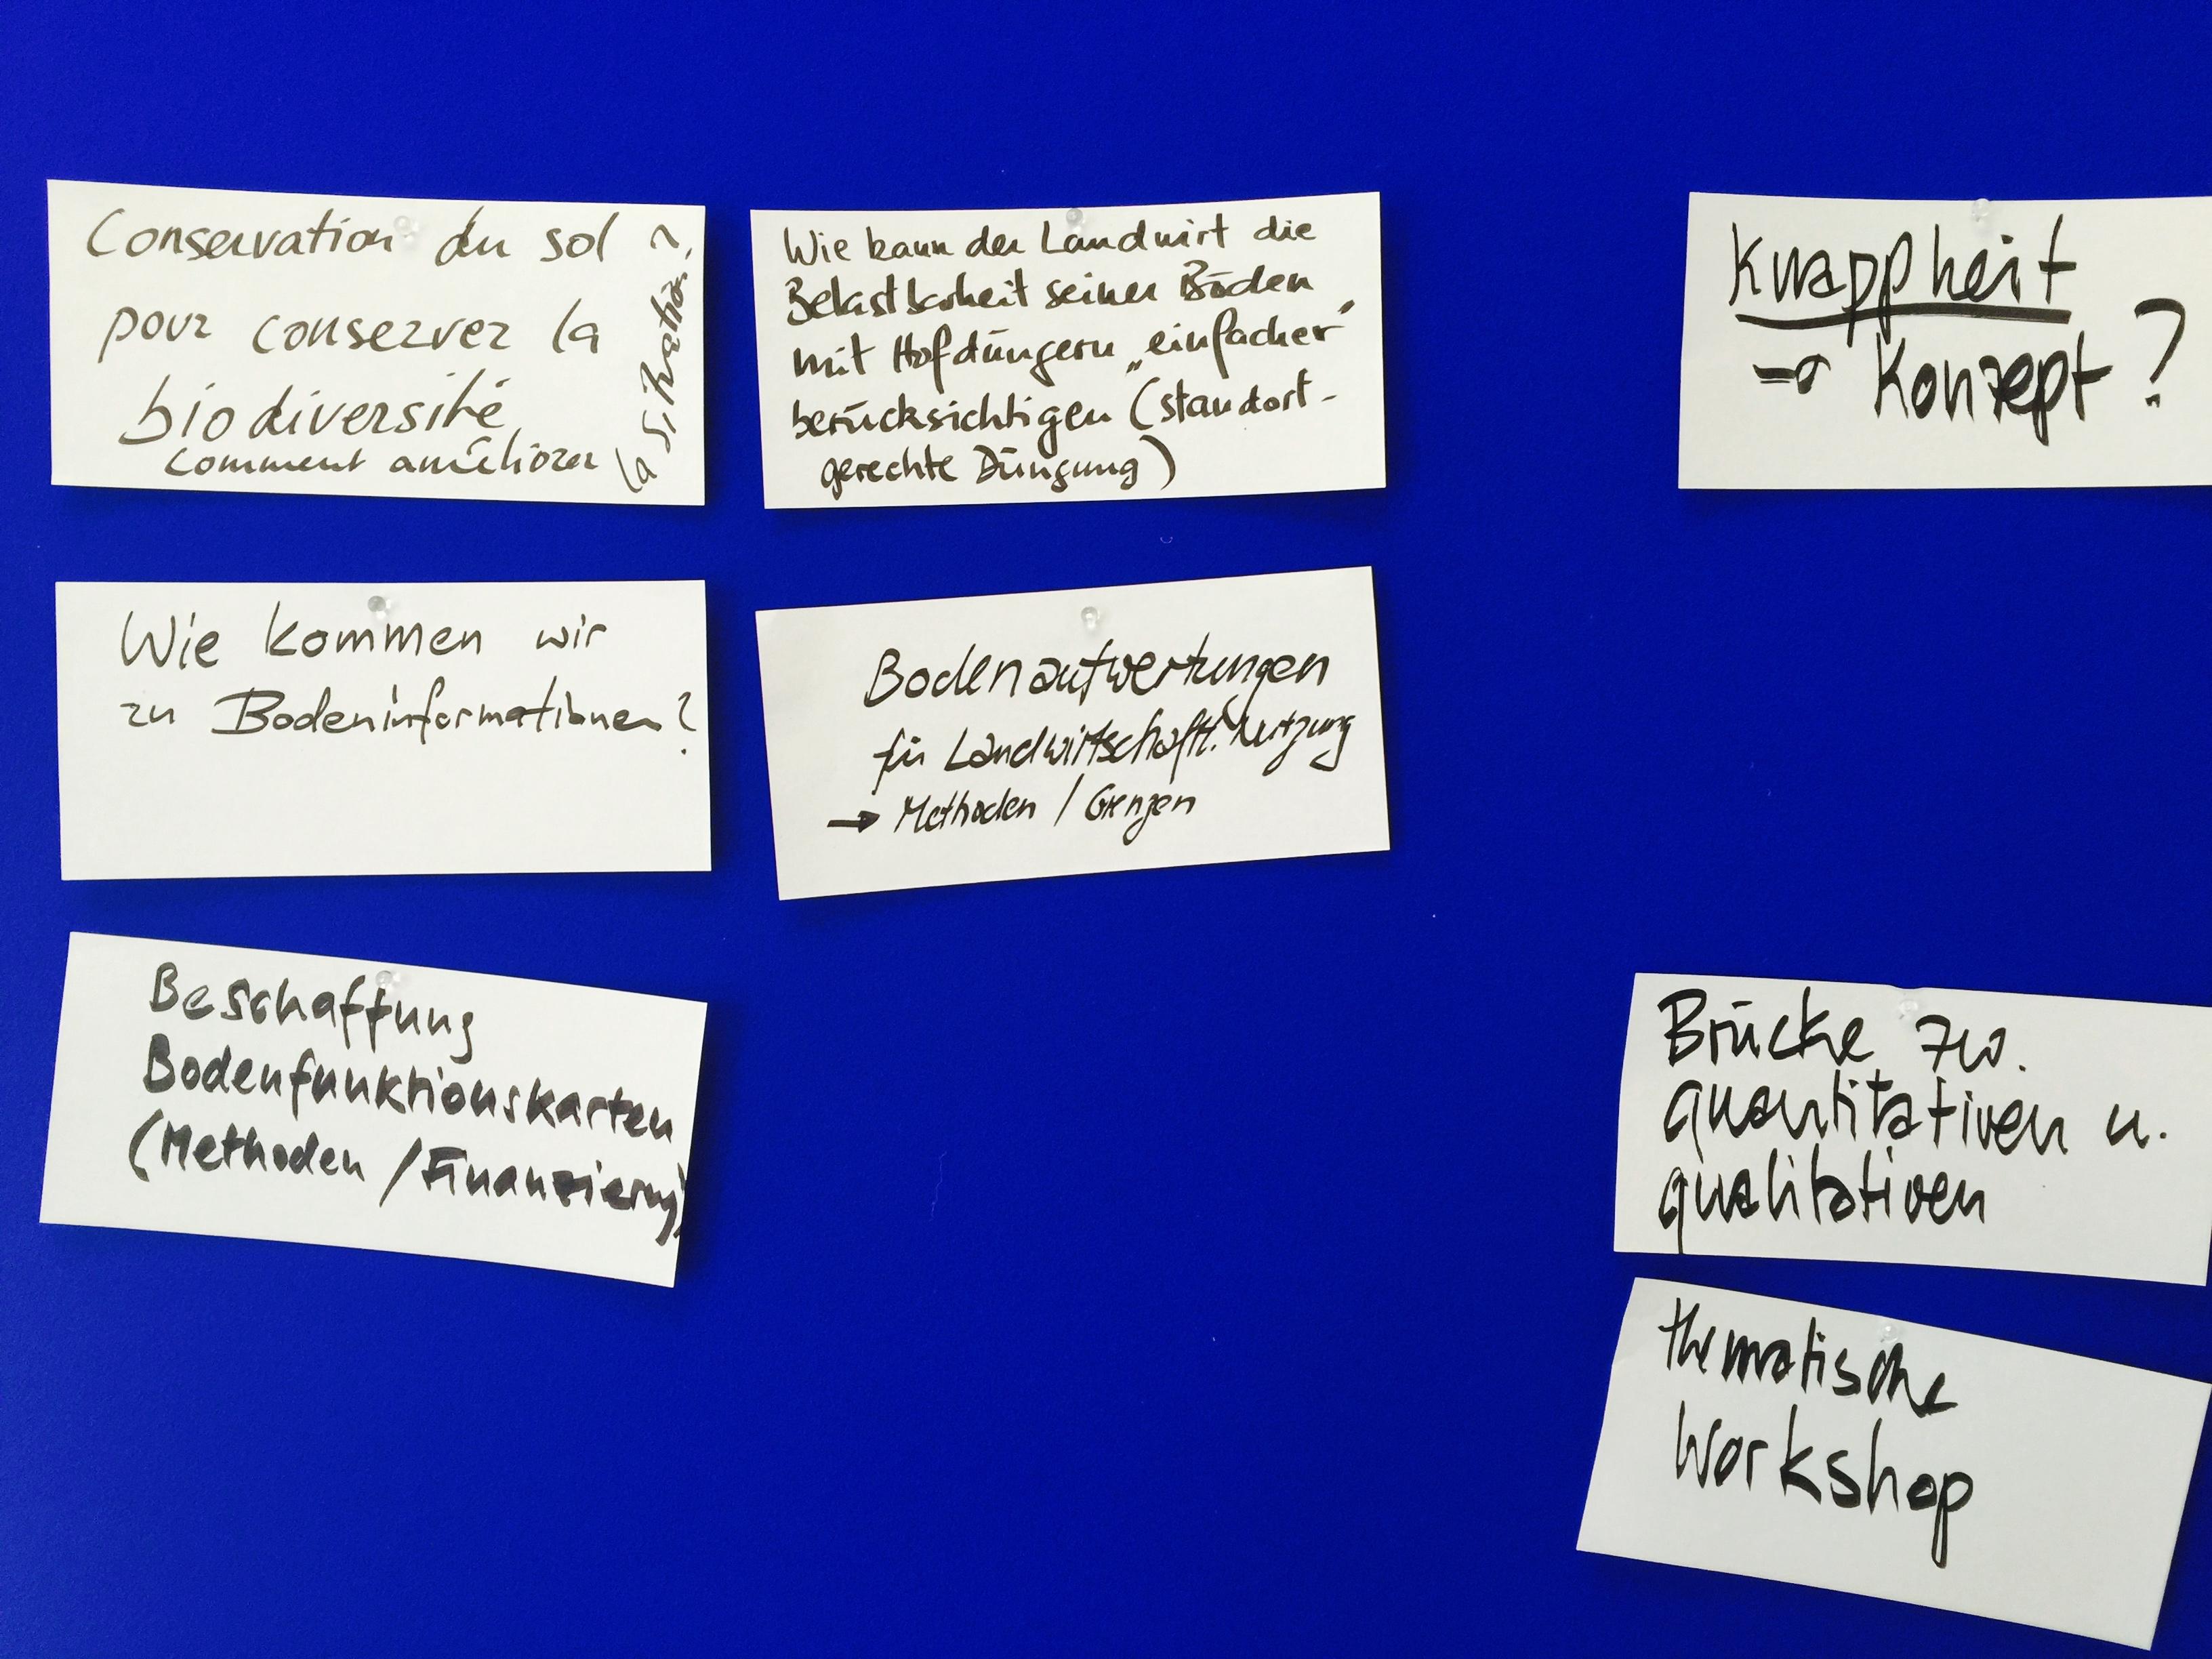 Conservation du sol ?
pour conserver la
biodiversité,
comment améliorer
la situation?
Wie kann der Landwirt die
Belastbarheit seiner Böden
mit Hofdüngern „einfacher“
berücksichtigen (standort-
gerechte Düngung)
Knappheit
→ Konzept ?
Wie kommen wir
zu Bodeninformationen?
Bodenaufwertungen
für Landwirtschaftl. Nutzung
→ Methoden / Grenzen
Beschaffung
Bodenfunktionskarten
(Methoden / Finanzierung)
Brücke zw.
quantitativen u.
qualitativen
thematische
Workshop